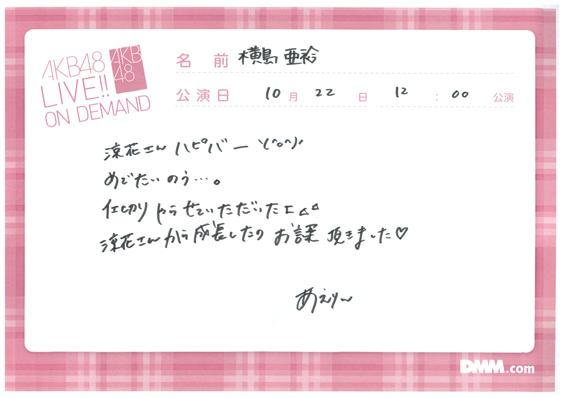 AKB48
LIVE!!
ON DEMAND
AKB
48
名 前 横島 亜衿
公演日 10 月 22 日 12 : 00 公演
涼花さんハピバー
めでたいのう…。
仕切りやらせていただいた
涼花さんから成長したの お言葉 頂きました♡
あえりー
DMM.com